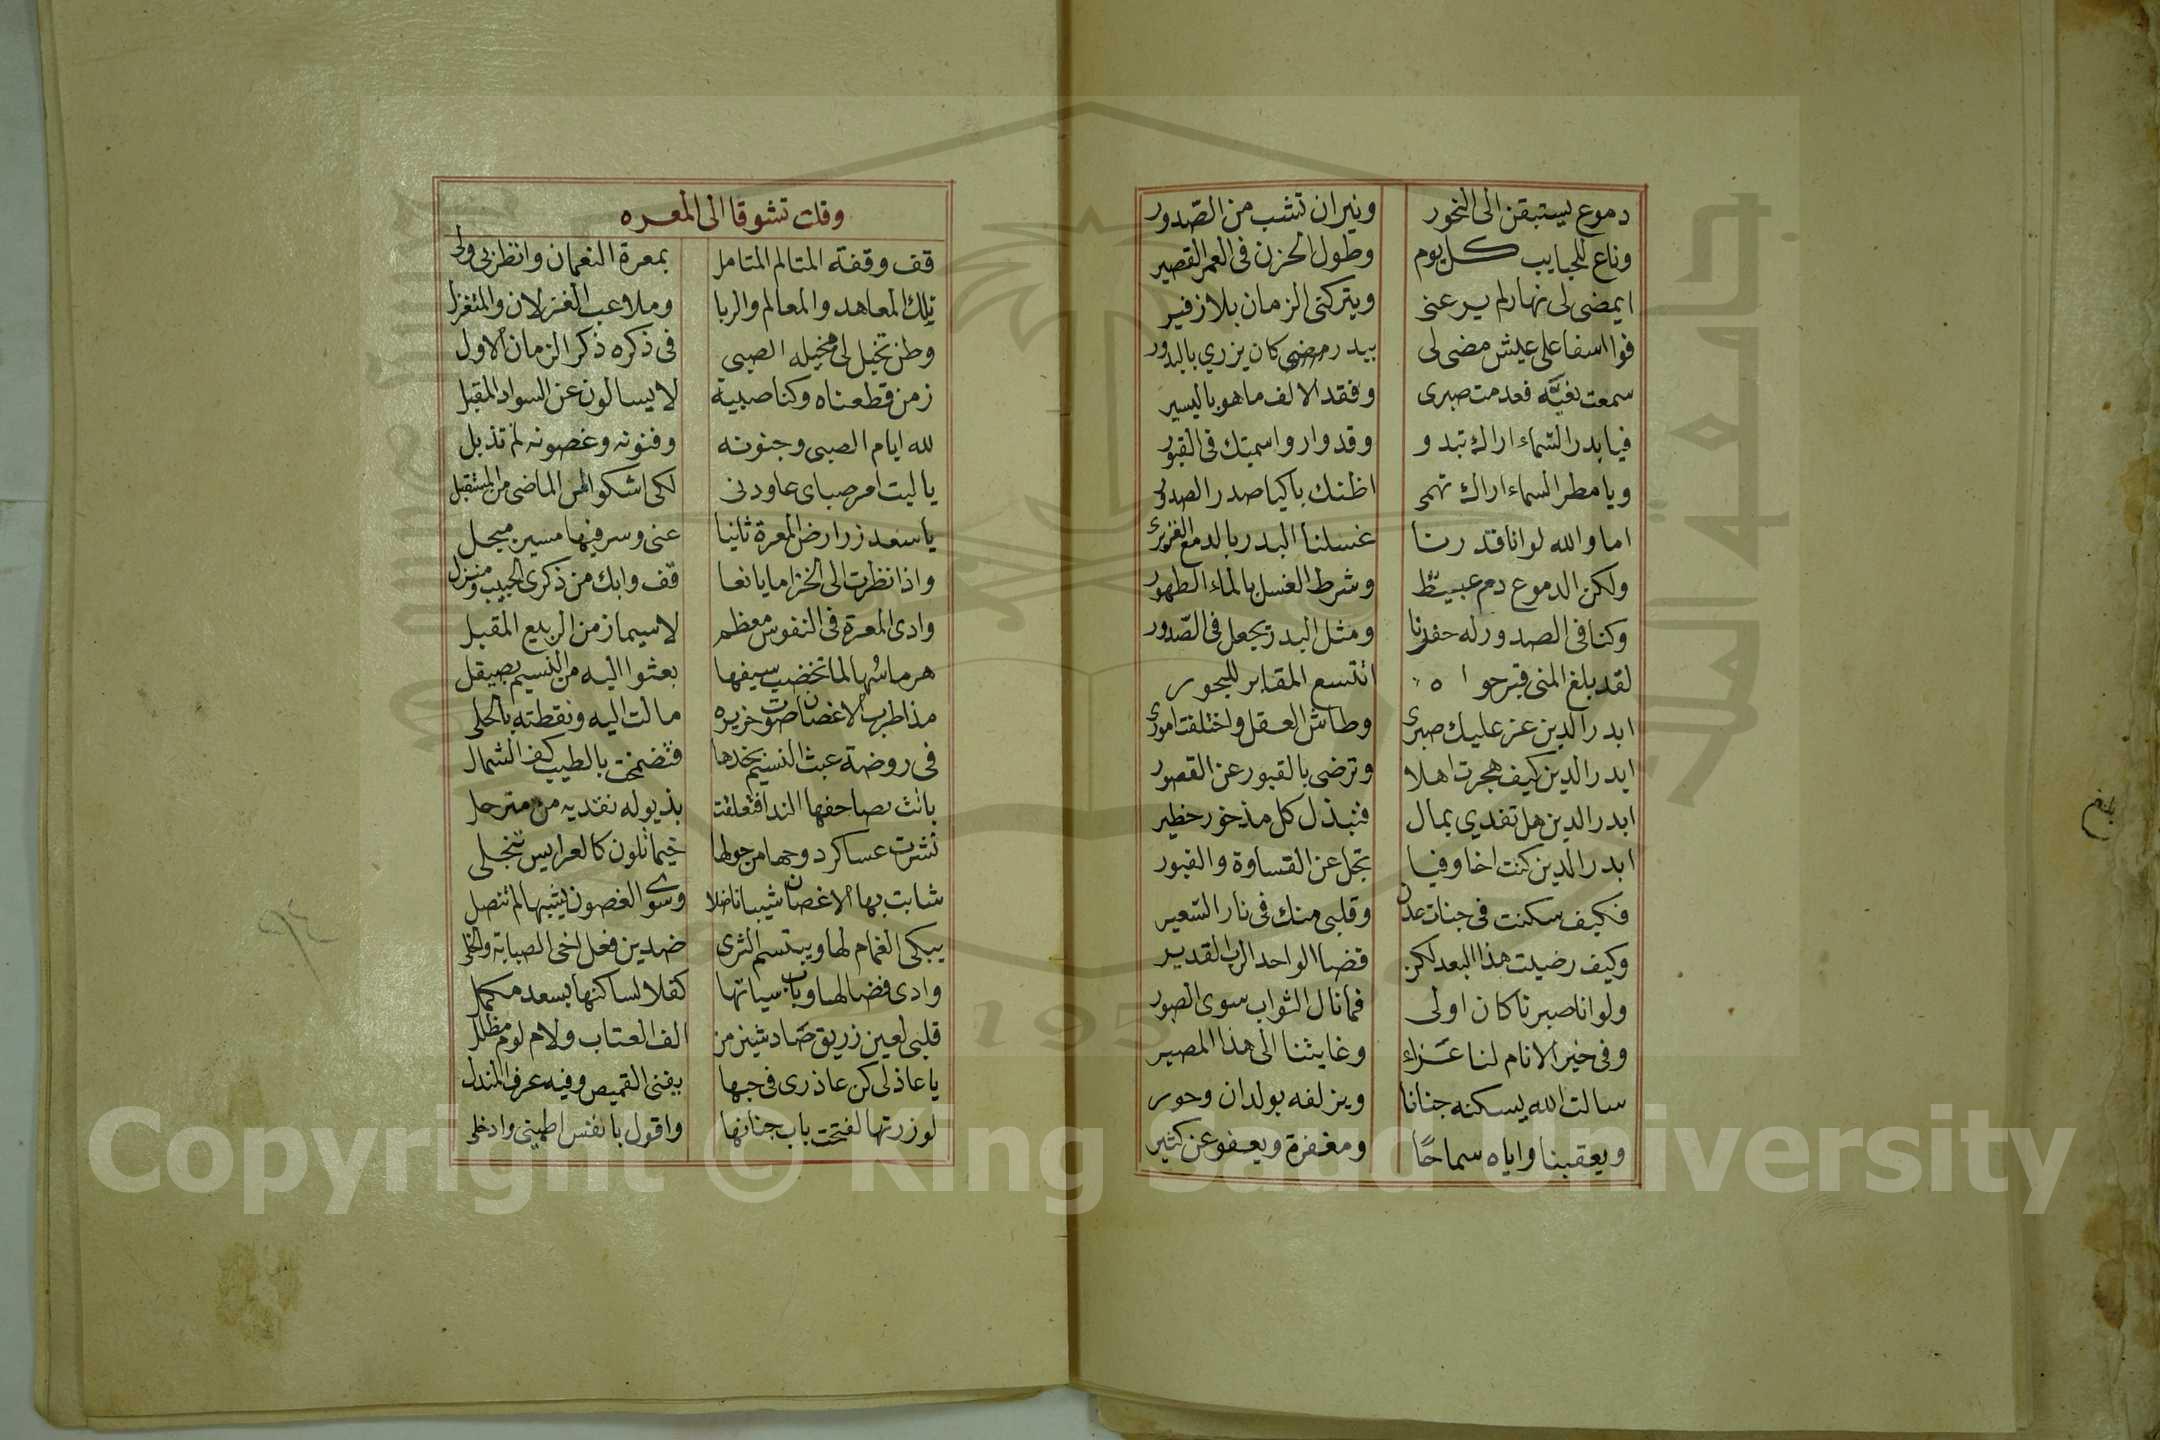 دموع يستبقن الى النحور ونيران تشب من الصدور
وناع للحبايب كل يوم وطول الحزن فى العمر القصير
ايمضى لى نهار لم يرعنى ويتركنى الزمان بلا زفير
فوا اسفا على عيش مضى لى ببدر مضى كان يزري بالبدور
سمعت بغيه فعدمت صبرى وفقد الالف ما هو باليسير
فيا بدر السماء اراك تبدو وقد واروا سميك فى القبور
ويا مطر السماء اراك تهمى اظنك باكيا صدر الصدور
اما والله لو انا قدرنا غسلنا البدر بالدمع الغزير
ولكن الدموع دم عبيط وشرط الغسل بالماء الطهور
وكنا فى الصدور له حفرنا ومثل البدر يجعل فى الصدور
لقد بلغ المنى قبر حواه اتتسع المقابر للبحور
ابدر الدين عز عليك صبرى وطاش العقل واختلفت امورى
ابدر الدين كيف هجرت اهلا وترضى بالقبور عن القصور
ابدر الدين هل تفدي بمال فنبذل كل مذخور خطير
ابدر الدين كنت اخا وفيا تجل عن القساوة والفبور
فكيف سكنت فى جنات عدن وقلبى منك فى نار السعير
وكيف رضيت هذا البعد لكن قضا الواحد الرب القدير
ولو انا صبرنا كان اولى فما نال الثواب سوى الصبور
وفى خير الانام لنا عزاء وغايتنا الى هذا المصير
سالت الله يسكنه جنانا ويزلفه بولدان وحور
ويعقبنا واياه سماحا ومغفرة ويعفو عن كثير
بلغ
وقلت تشوقا الى المعره
قف وقفة المتالم المتامل بمعرة النعمان وانظر بى ولى
تلك المعاهد والمعالم والربا وملاعب الغزلان والمتغزل
وطن تخيل لى مخيله الصبى فى ذكره ذكر الزمان الاول
زمن قطعناه وكنا صبية لا يسالون عن السواد المقبل
لله ايام الصبى وجنونه وفنونه وغصونه لم تذبل
يا ليت امر صباى عاودنى لكى اشكو الى الماضى من المستقبل
يا سعد زر ارض المعرة ثانيا عنى وسر فيها مسير مبجل
واذا نظرت الى الخزاما يانعا قف وابك من ذكرى الحبيب ومنزل
وادى المعرة فى النفوس معظم لا سيما زمن الربيع المقبل
هرماسها لما تخضب سيفها بعثوا اليه من النسيم بصيقل
مذ اطرب الاغصان صوت خريره مالت اليه ونقطته بالحلى
فى روضة عبث النسيم بخدها فتضمخت بالطيب كف الشمال
باتت يصافحها الندا فتعلقت بذيوله نفديه من مترحل
نشرت عساكر دوحها من حولها خيما تلون كالعرايس تنجلى
شابت بها الاغصان شيبا ناضلا وسوى الغصون يشيبها لم تنصل
يبكى الغمام لها ويبتسم الثرى ضدين فعل اخى الصبابة والخلى
وادى فضا لها وباب سياتها كفلا لساكنها بسعد مكمل
قلبى لعين زريق صاد شين من الف العتاب ولام لوم مظلل
يا عاذلى كن عاذرى فى حبها يفنى القميص وفيه عرف المندل
لو زرتها لفتحت باب جنانها واقول يا نفس اطمينى وادخلى
Copyright © King Saud University
1957